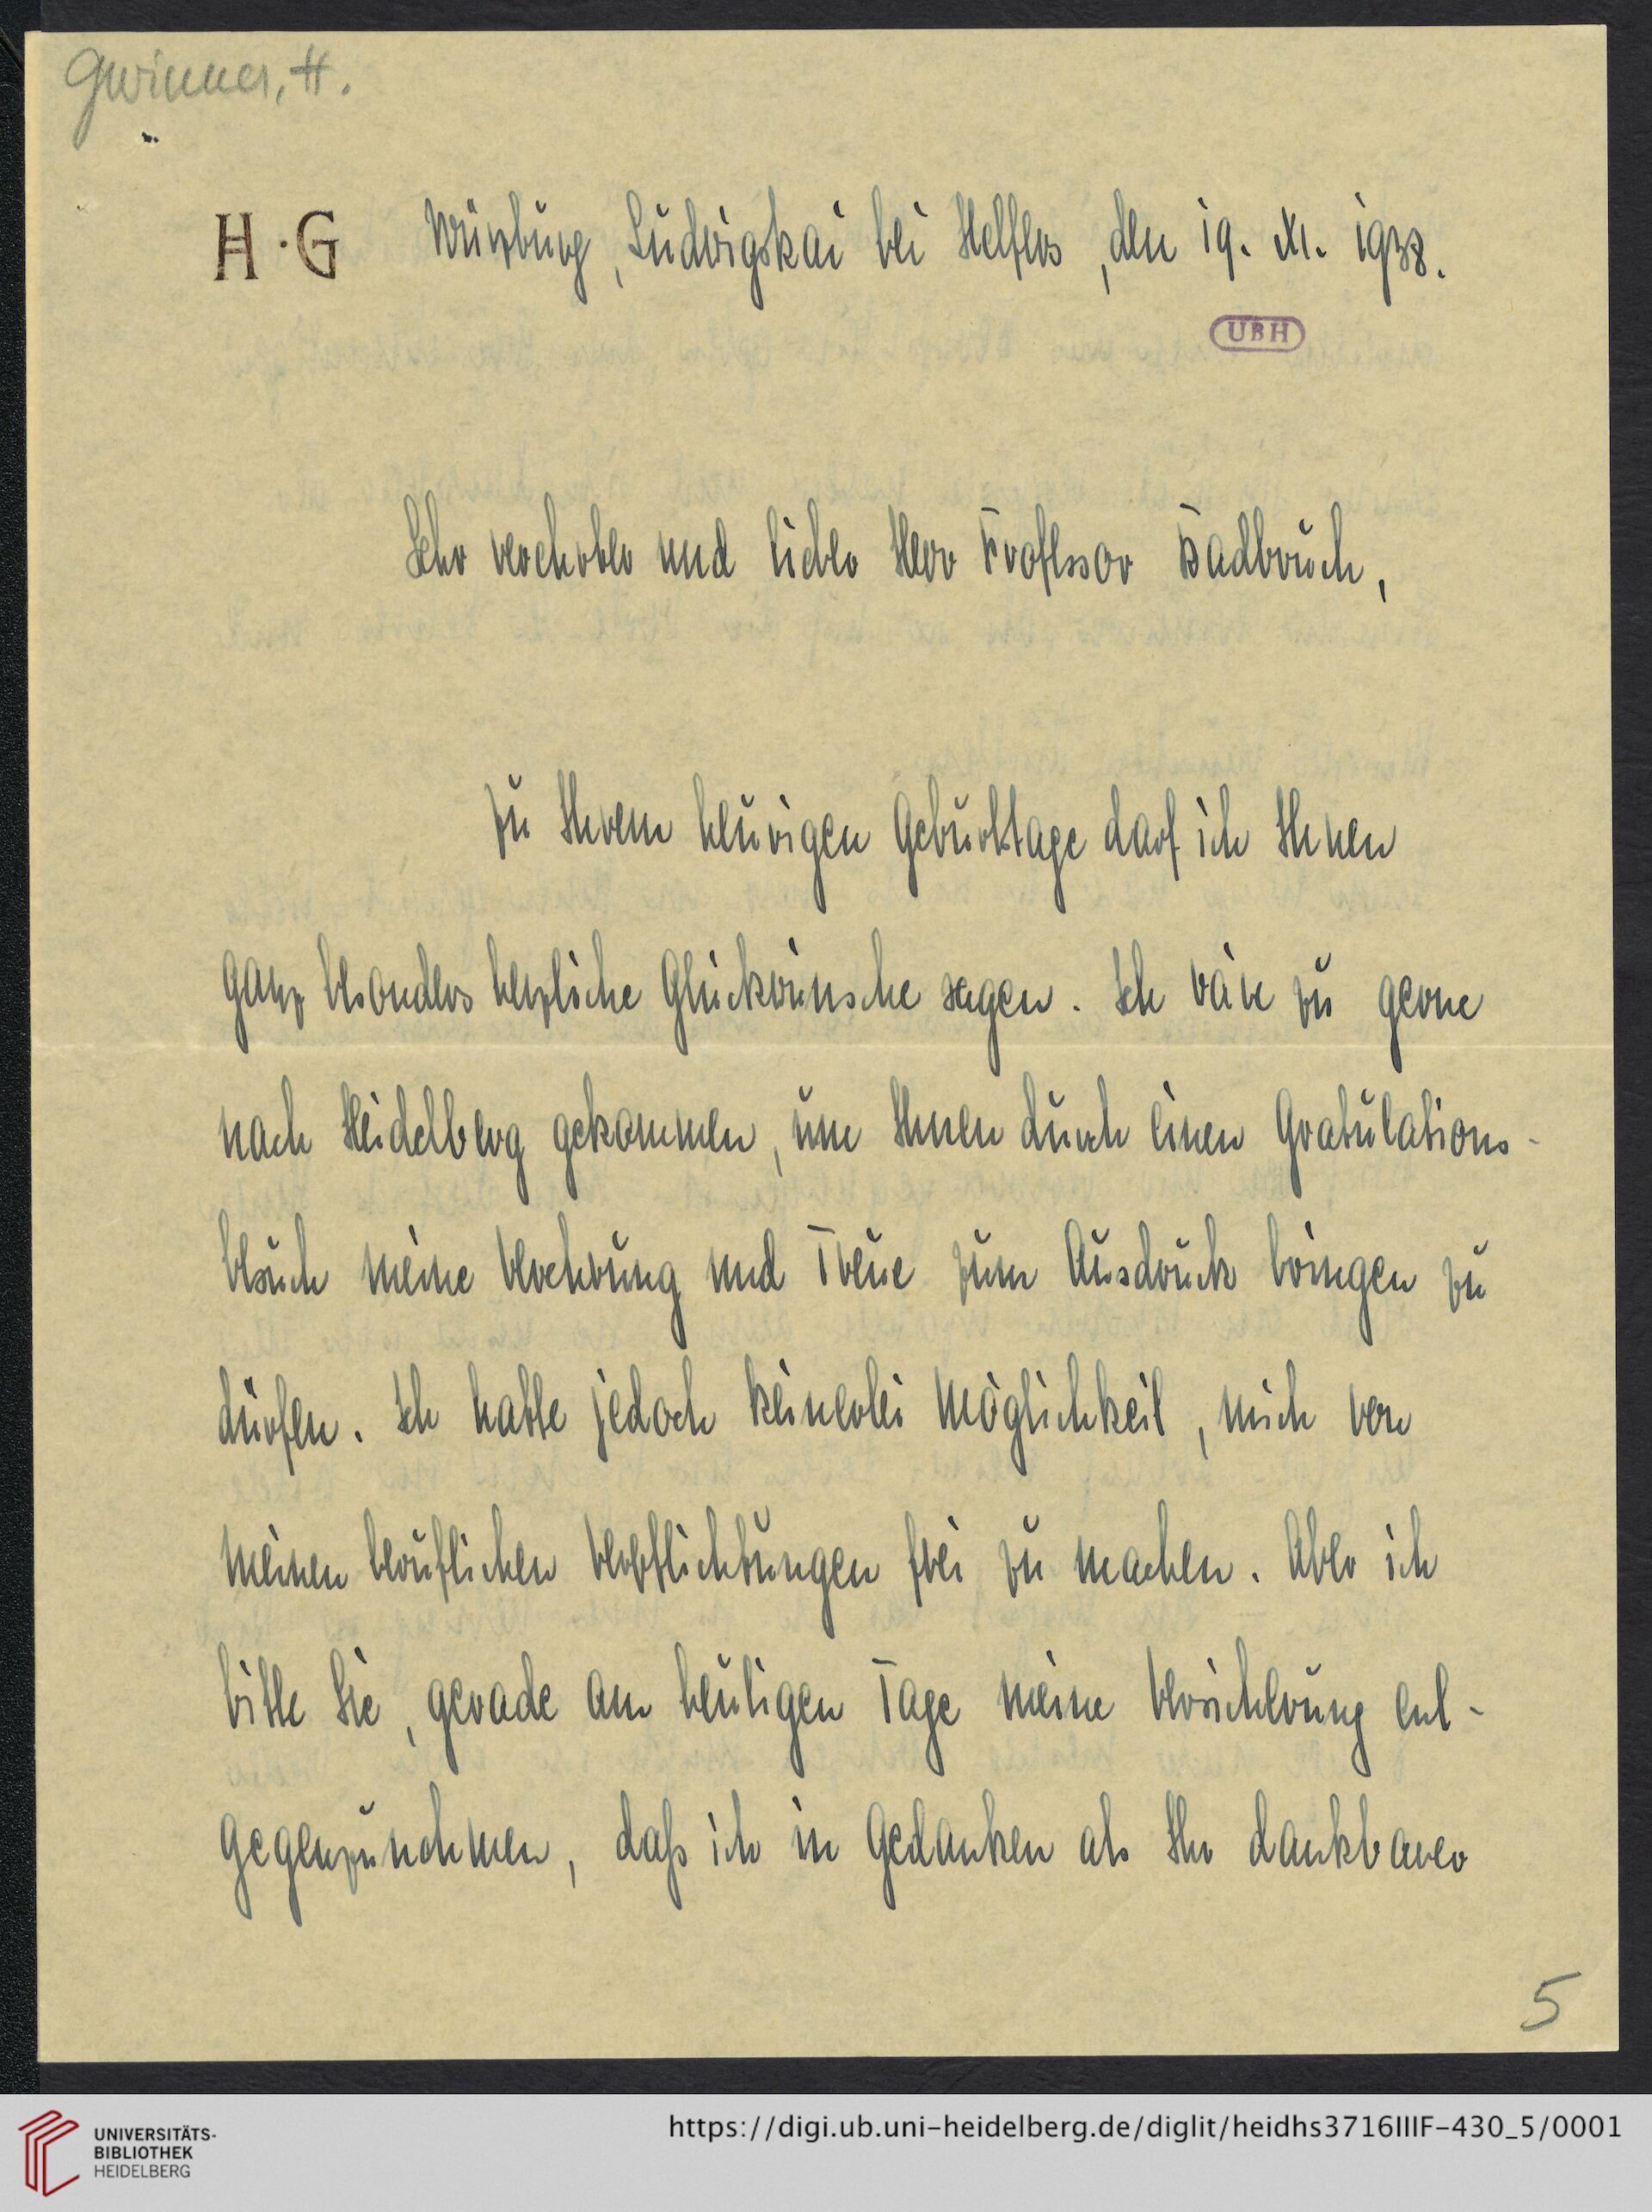 Gwinner, H.
H·G Würzburg, Ludwigskai bei Helfers, den 19. XI. 1938.
UBH
Sehr verehrter und lieber Herr Professor Radbruch,
zu Ihrem heurigen Geburtstage darf ich Ihnen
ganz besonders herzliche Glückwünsche sagen. Ich wäre zu gerne
nach Heidelberg gekommen, um Ihnen durch einen Gratulations-
besuch meine Verehrung und Treue zum Ausdruck bringen zu
dürfen. Ich hatte jedoch keinerlei Möglichkeit, mich von
meinen beruflichen Verpflichtungen frei zu machen. Aber ich
bitte Sie, gerade am heutigen Tage meine Versicherung ent-
gegenzunehmen, daß ich in Gedanken als Ihr dankbarer
5
UNIVERSITÄTS-
BIBLIOTHEK
HEIDELBERG
https://digi.ub.uni-heidelberg.de/diglit/heidhs3716IIIF-430_5/0001